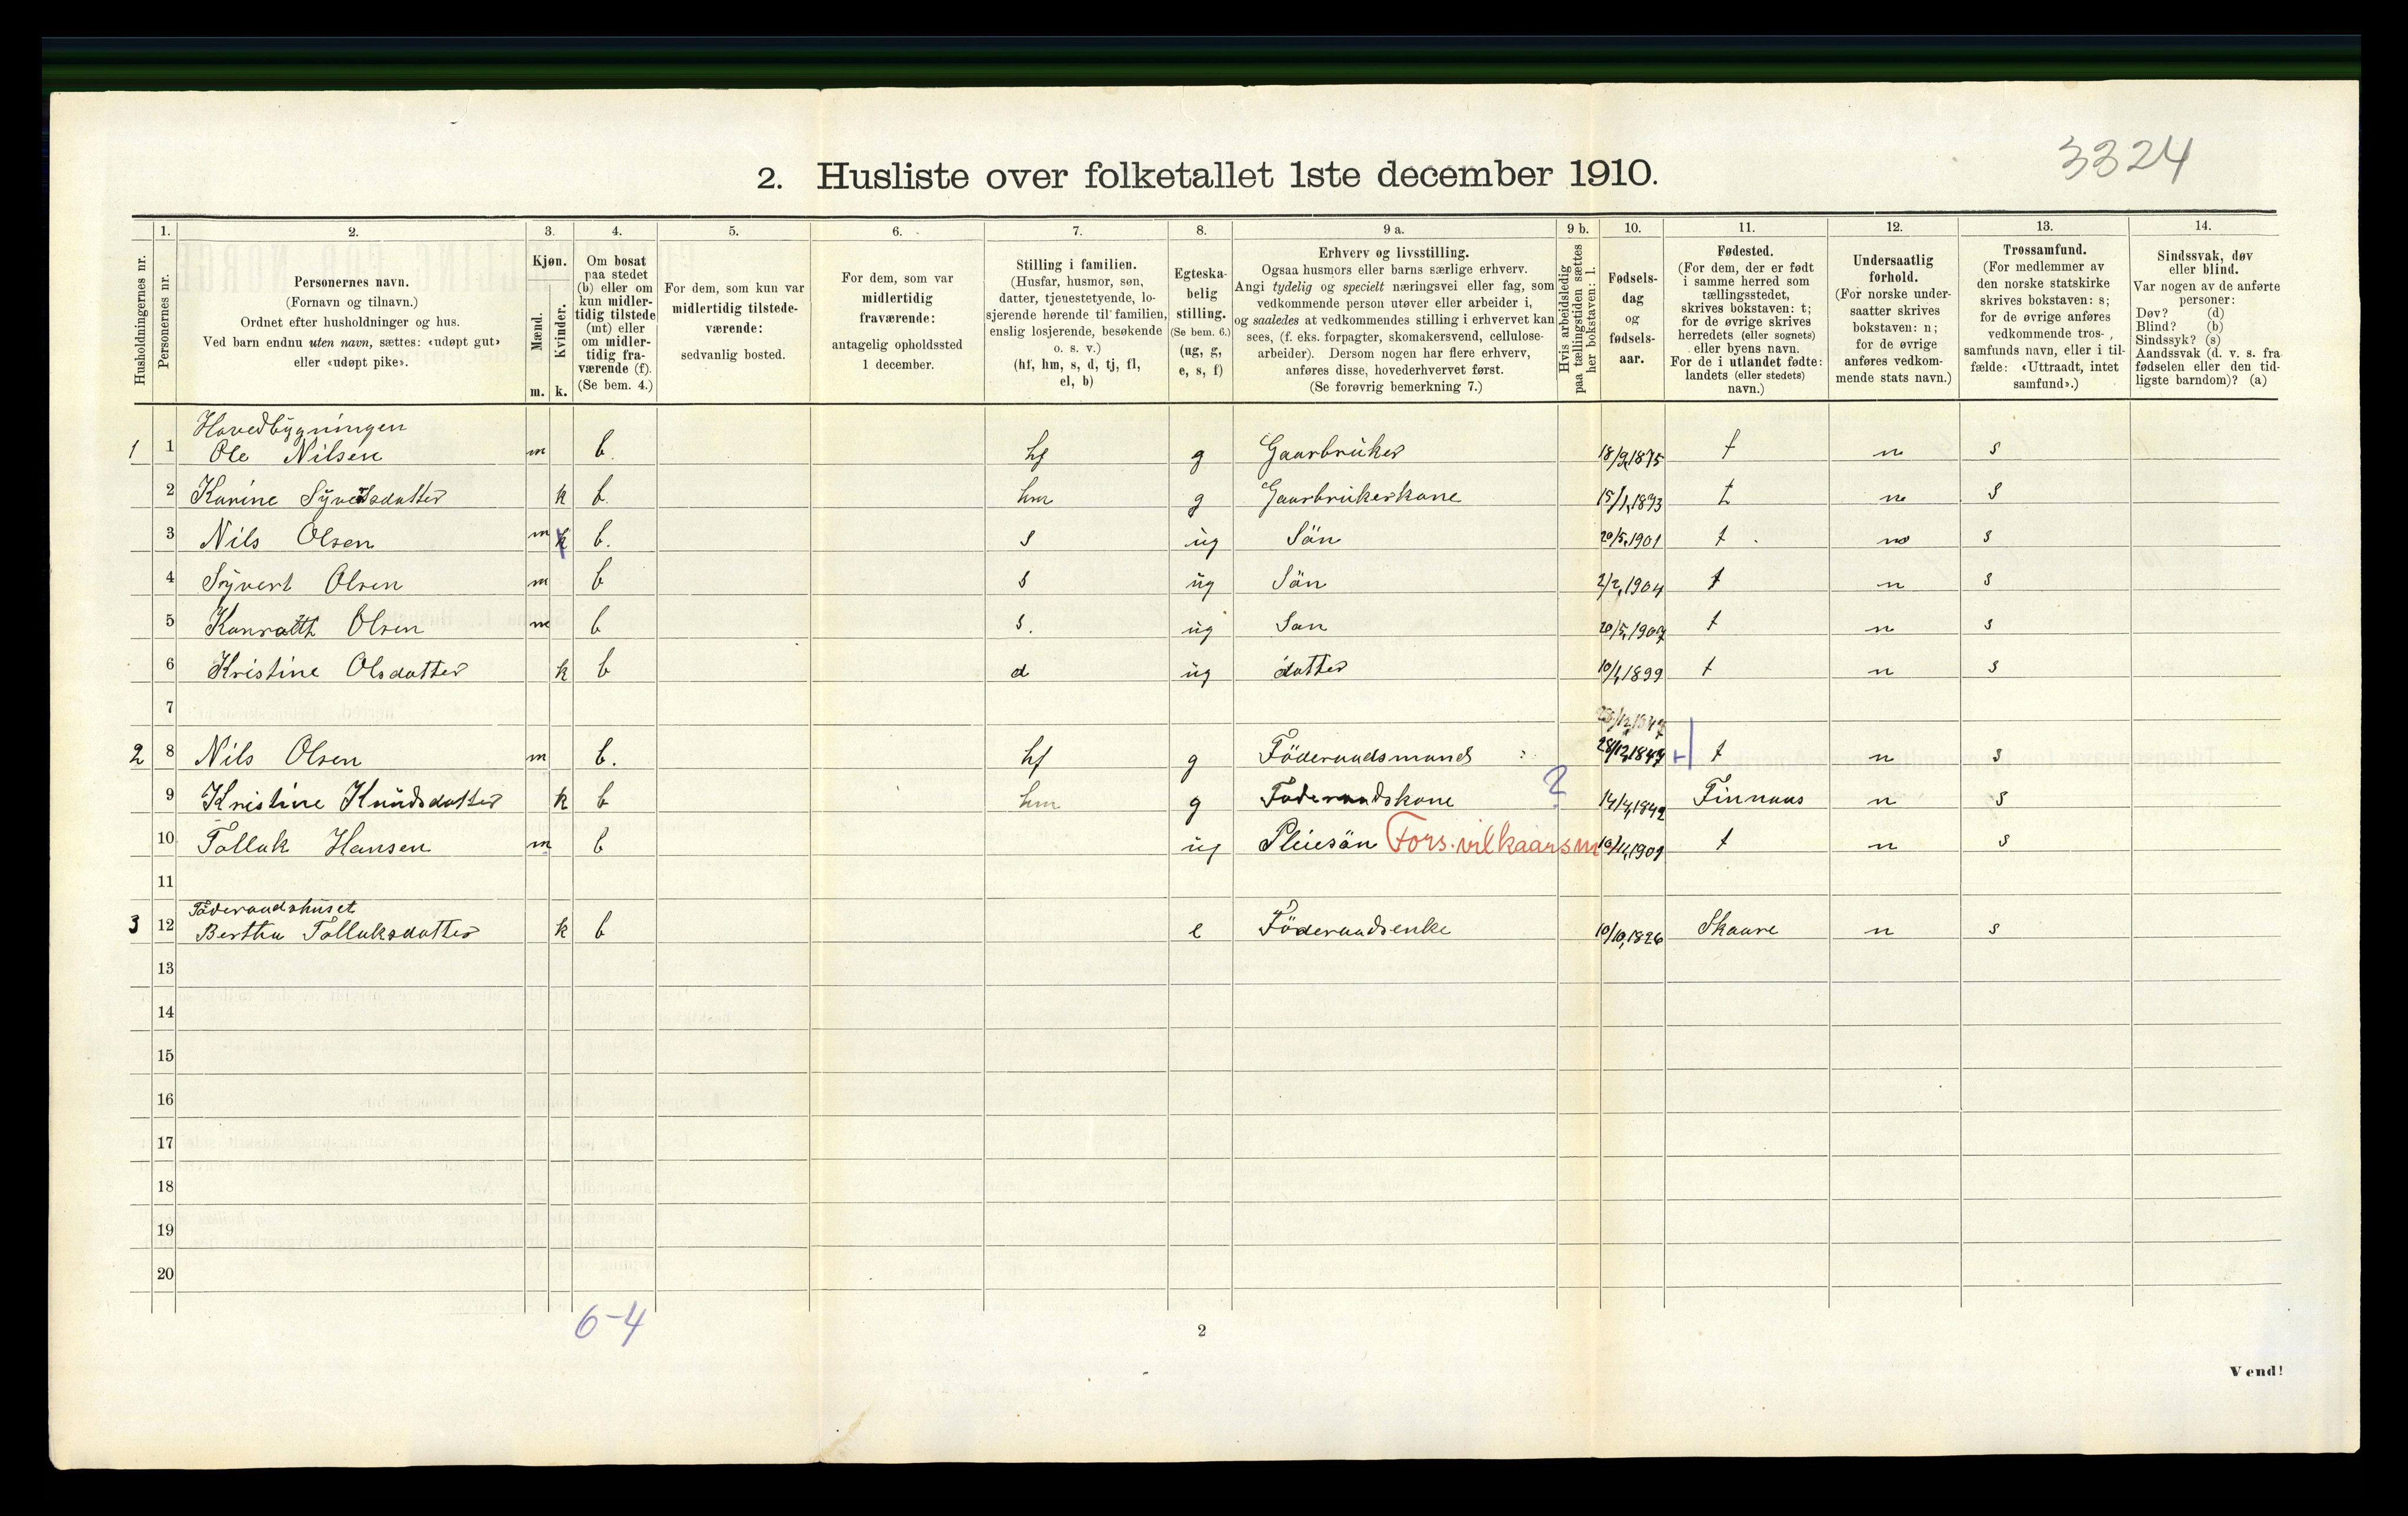 3324
2. Husliste over folketallet 1ste december 1910.
Husholdningernes nr.
1. Personernes nr.
2. Personernes navn.
(Fornavn og tilnavn.)
Ordnet efter husholdninger og hus.
Ved barn endnu uten navn, sættes: «udøpt gut»
eller «udøpt pike».
3. Kjøn.
Mænd. m.
Kvinder. k.
4. Om bosat
paa stedet
(b) eller om
kun midler-
tidig tilstede
(mt) eller
om midler-
tidig fra-
værende (f).
(Se bem. 4.)
5. For dem, som kun var
midlertidig tilstede-
værende:
sedvanlig bosted.
6. For dem, som var
midlertidig
fraværende:
antagelig opholdssted
1 december.
7. Stilling i familien.
(Husfar, husmor, søn,
datter, tjenestetyende, lo-
sjerende hørende til familien,
enslig losjerende, besøkende
o. s. v.)
(hf, hm, s, d, tj, fl,
el, b)
8. Egteska-
belig
stilling.
(Se bem. 6.)
(ug, g,
e, s, f)
9 a. Erhverv og livsstilling.
Ogsaa husmors eller barns særlige erhverv.
Angi tydelig og specielt næringsvei eller fag, som
vedkommende person utøver eller arbeider i,
og saaledes at vedkommendes stilling i erhvervet kan
sees, (f. eks. forpagter, skomakersvend, cellulose-
arbeider). Dersom nogen har flere erhverv,
anføres disse, hovederhvervet først.
(Se forøvrig bemerkning 7.)
9 b. Hvis arbeidsledig
paa tællingstiden sættes
her bokstaven: l.
10. Fødsels-
dag
og
fødsels-
aar.
11. Fødested.
(For dem, der er født
i samme herred som
tællingsstedet,
skrives bokstaven: t;
for de øvrige skrives
herredets (eller sognets)
eller byens navn.
For de i utlandet fødte:
landets (eller stedets)
navn.)
12. Undersaatlig
forhold.
(For norske under-
saatter skrives
bokstaven: n;
for de øvrige
anføres vedkom-
mende stats navn.)
13. Trossamfund.
(For medlemmer av
den norske statskirke
skrives bokstaven: s;
for de øvrige anføres
vedkommende tros-
samfunds navn, eller i til-
fælde: «Uttraadt, intet
samfund».)
14. Sindssvak, døv
eller blind.
Var nogen av de anførte
personer:
Døv? (d)
Blind? (b)
Sindssyk? (s)
Aandssvak (d. v. s. fra
fødselen eller den tid-
ligste barndom)? (a)
Hovedbygningen
1 1 Ole Nilsen m b. hf g Gaarbruker 18/9,1875 t n s
2 Karine Syvertsdatter k b. hm g Gaarbrukerkone 15/1,1873 t n s
3 Nils Olsen m k b. s ug Sön 20/5,1901 t n s
4 Syvert Olsen m b s ug Sön 2/2,1904 t n s
5 Konratth Olsen m b s. ug Son 20/5,1907 t n s
6 Kristine Olsdatter k b d ug datter 10/4,1899 t n s
7
2 8 Nils Olsen m b. hf g Föderaadsmand 28/12,1847 t n s
9 Kristine Knudsdatter k b hm g Föderaadskone ? 14/4,1842 Finnaas n s
10 Tollak Hansen m b ug Pleiesön Fors. vilkaarsm 16/11,1901 t n s
11
Föderaadshuset
3 12 Bertha Tollaksdatter k b e Föderaadsenke 10/10,1826 Skaare n s
13
14
15
16
17
18
19
20
6-4
2
Vend!